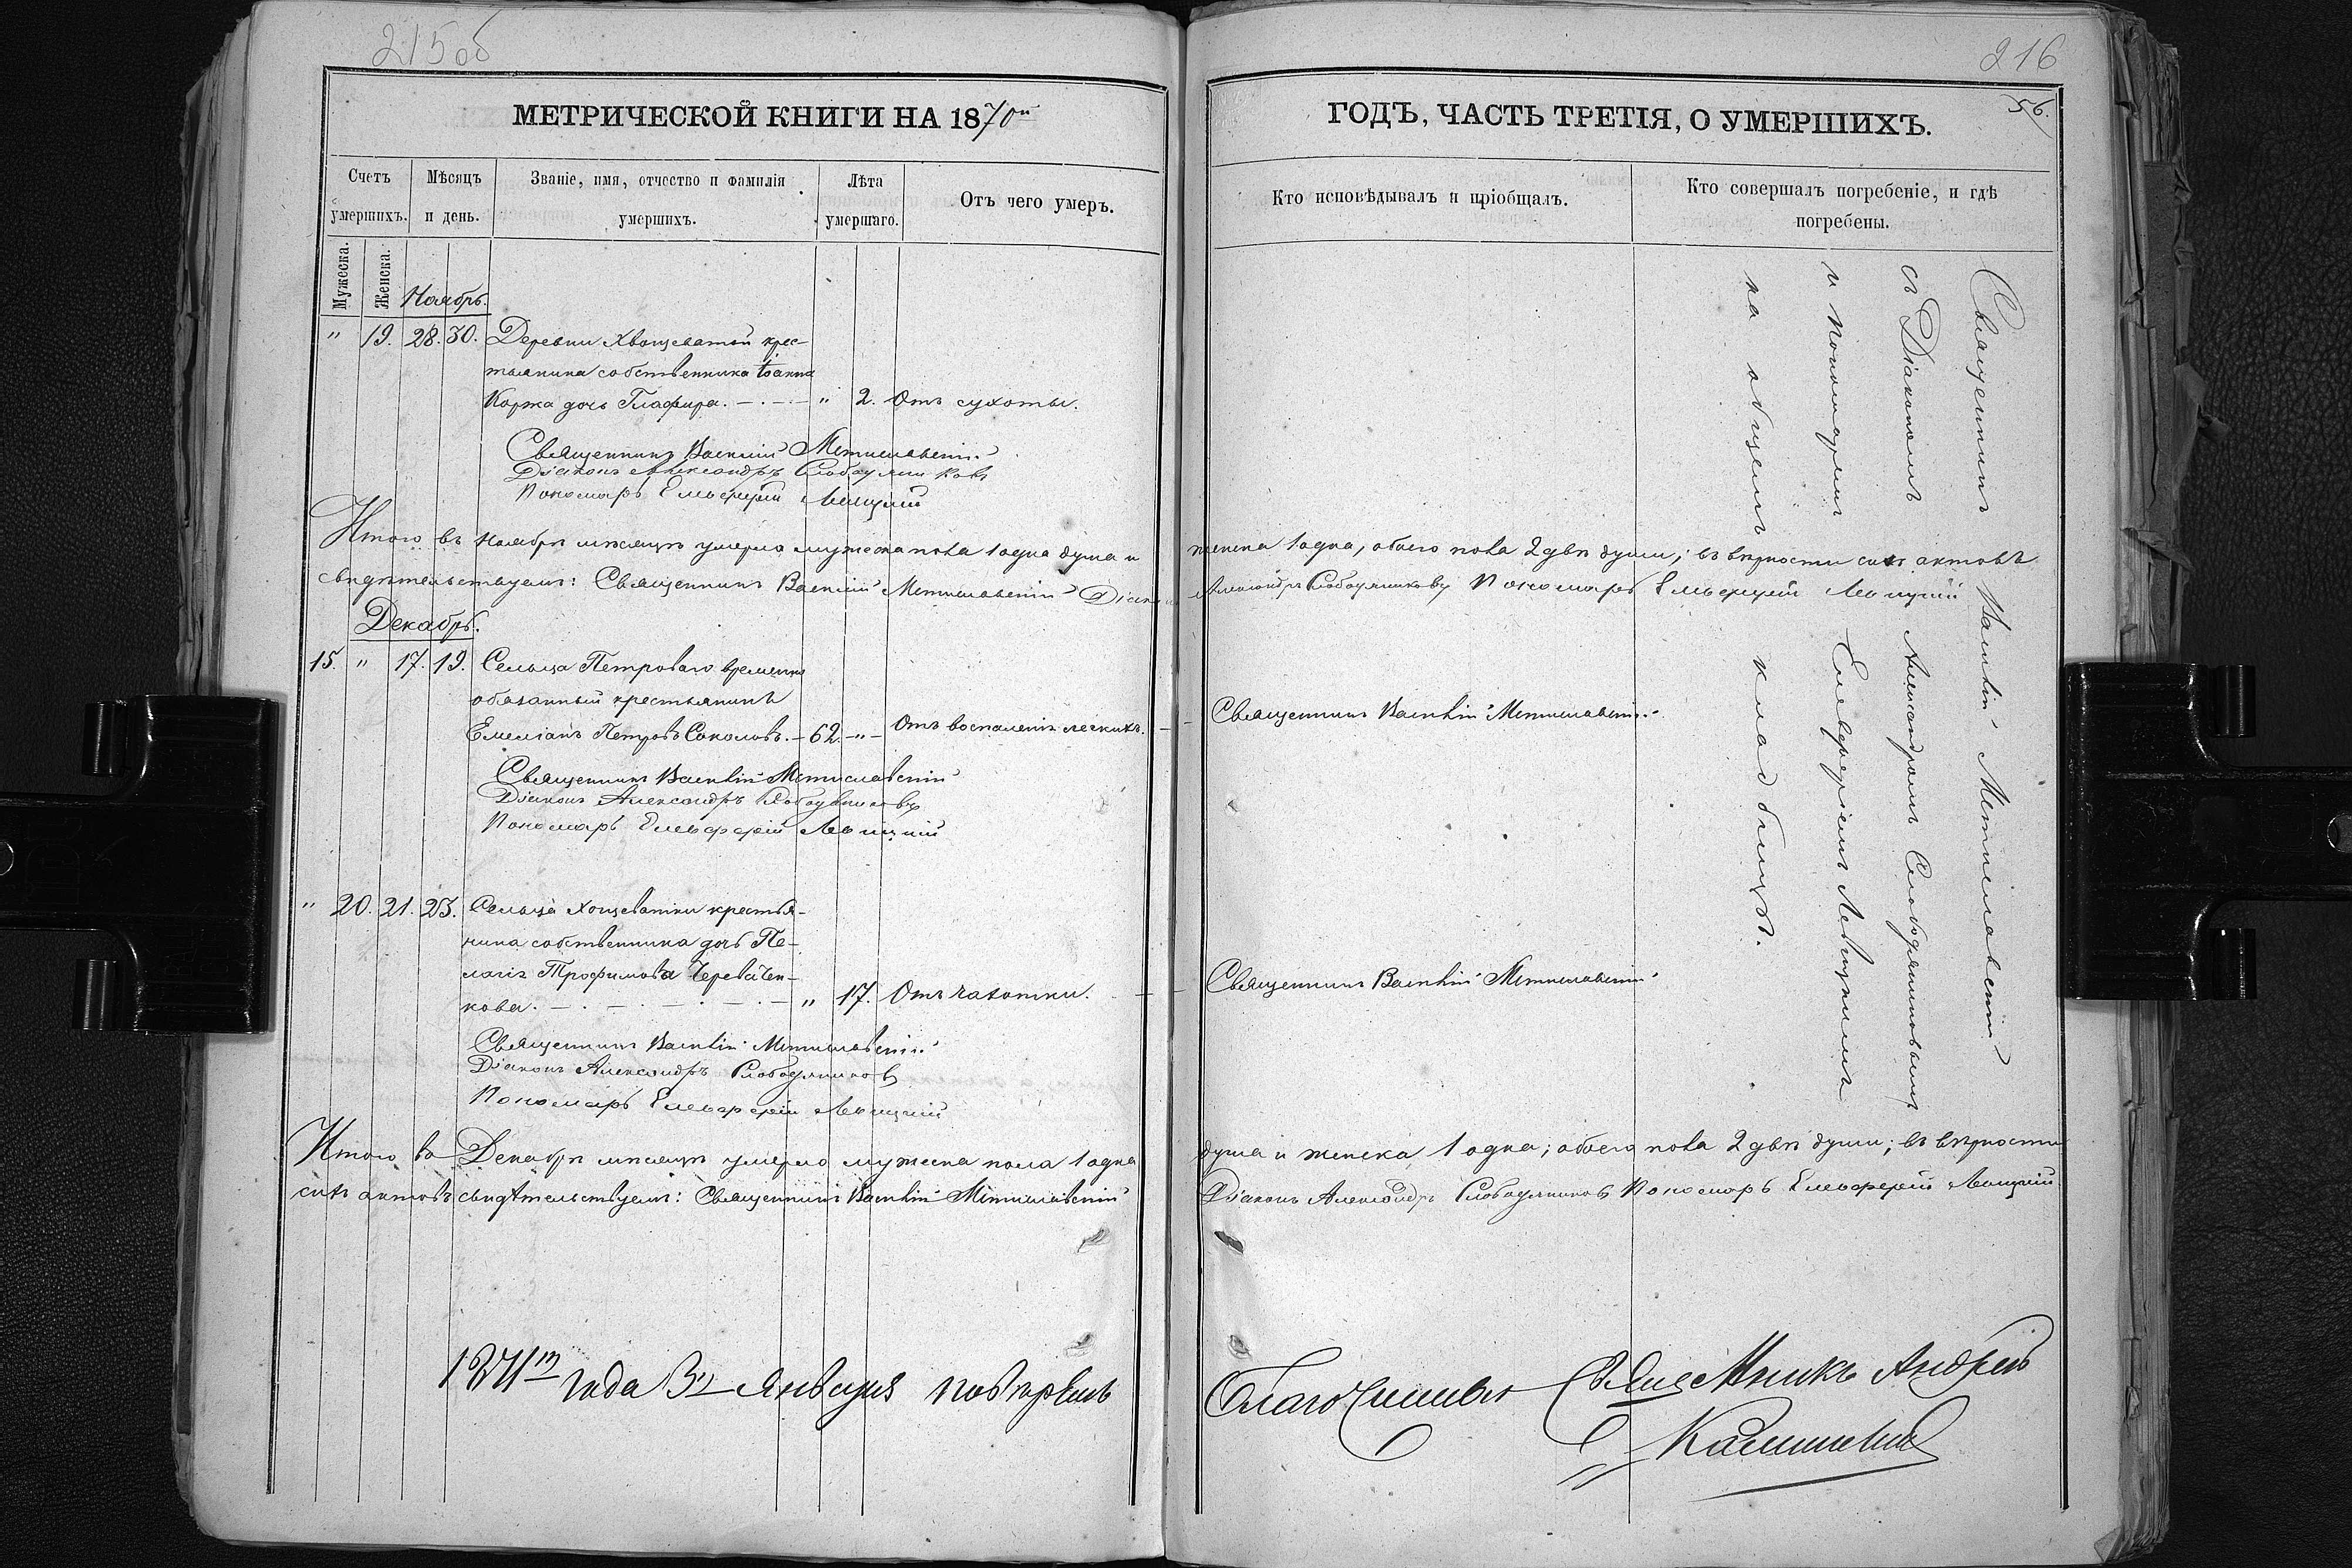 215 об
МЕТРИЧЕСКОЙ КНИГИ НА 1870й
Счетъ умершихъ.
Мѣсяцъ и день.
Званіе, имя, отчество и фамилія умершихъ.
Лѣта умершаго.
Отъ чего умеръ.
Мужеска.
Женска.
Ноябрь.
" 19. 28. 30. Деревни Хвощеватой крес-
тьянина собственника Іоанна
Коржа дочь Глафира. — " 2. Отъ сухоты.
Священникъ Василій Мстиславскій
Діаконъ Александръ Слободяниковъ
Пономарь Елевферій Левицкій
Итого въ Ноябрѣ мѣсяцѣ умерло мужеска пола 1 одна душа и
свидѣтельствуемъ: Священникъ Василій Мстиславскій Діаконъ
Декабрь.
15. " 17. 19. Сельца Петроваго временно
обязанный крестьянинъ
Емеліанъ Петровъ Соколовъ. — 62. — " — Отъ воспаленія легкихъ.
Священникъ Василій Мстиславскій
Діаконъ Александръ Слободяниковъ
Пономарь Елевферій Левицкій
" 20. 21. 23. Сельца Хощеватки крестья-
нина собственника дочь Пе-
лагія Трофимова Череватен-
кова. — " 17. Отъ чахотки.
Священникъ Василій Мстиславскій
Діаконъ Александръ Слободяниковъ
Пономарь Елевферій Левицкій
Итого въ Декабрѣ мѣсяцѣ умерло мужеска пола 1 одна
сихъ актовъ свидѣтельствуемъ: Священникъ Василій Мстиславскій
1871го года 3го Января повѣрялъ
216
56.
ГОДЪ, ЧАСТЬ ТРЕТІЯ, О УМЕРШИХЪ.
Кто исповѣдывалъ и пріобщалъ.
Кто совершалъ погребеніе, и гдѣ погребены.
Священникъ Василій Мстиславскій
съ Діакономъ Александромъ Слободяниковымъ
и пономаремъ Елевферіемъ Левицкимъ
на общемъ кладбищѣ.
женска 1 одна, обоего пола 2 двѣ души; въ вѣрности сихъ актовъ
Александръ Слободяниковъ Пономарь Елевферій Левицкій
Священникъ Василій Мстиславскій
Священникъ Василій Мстиславскій
душа и женска 1 одна; обоего пола 2 двѣ души; въ вѣрности
Діаконъ Александръ Слободяниковъ Пономарь Елевферій Левицкій
Благочинный Священникъ Андрей